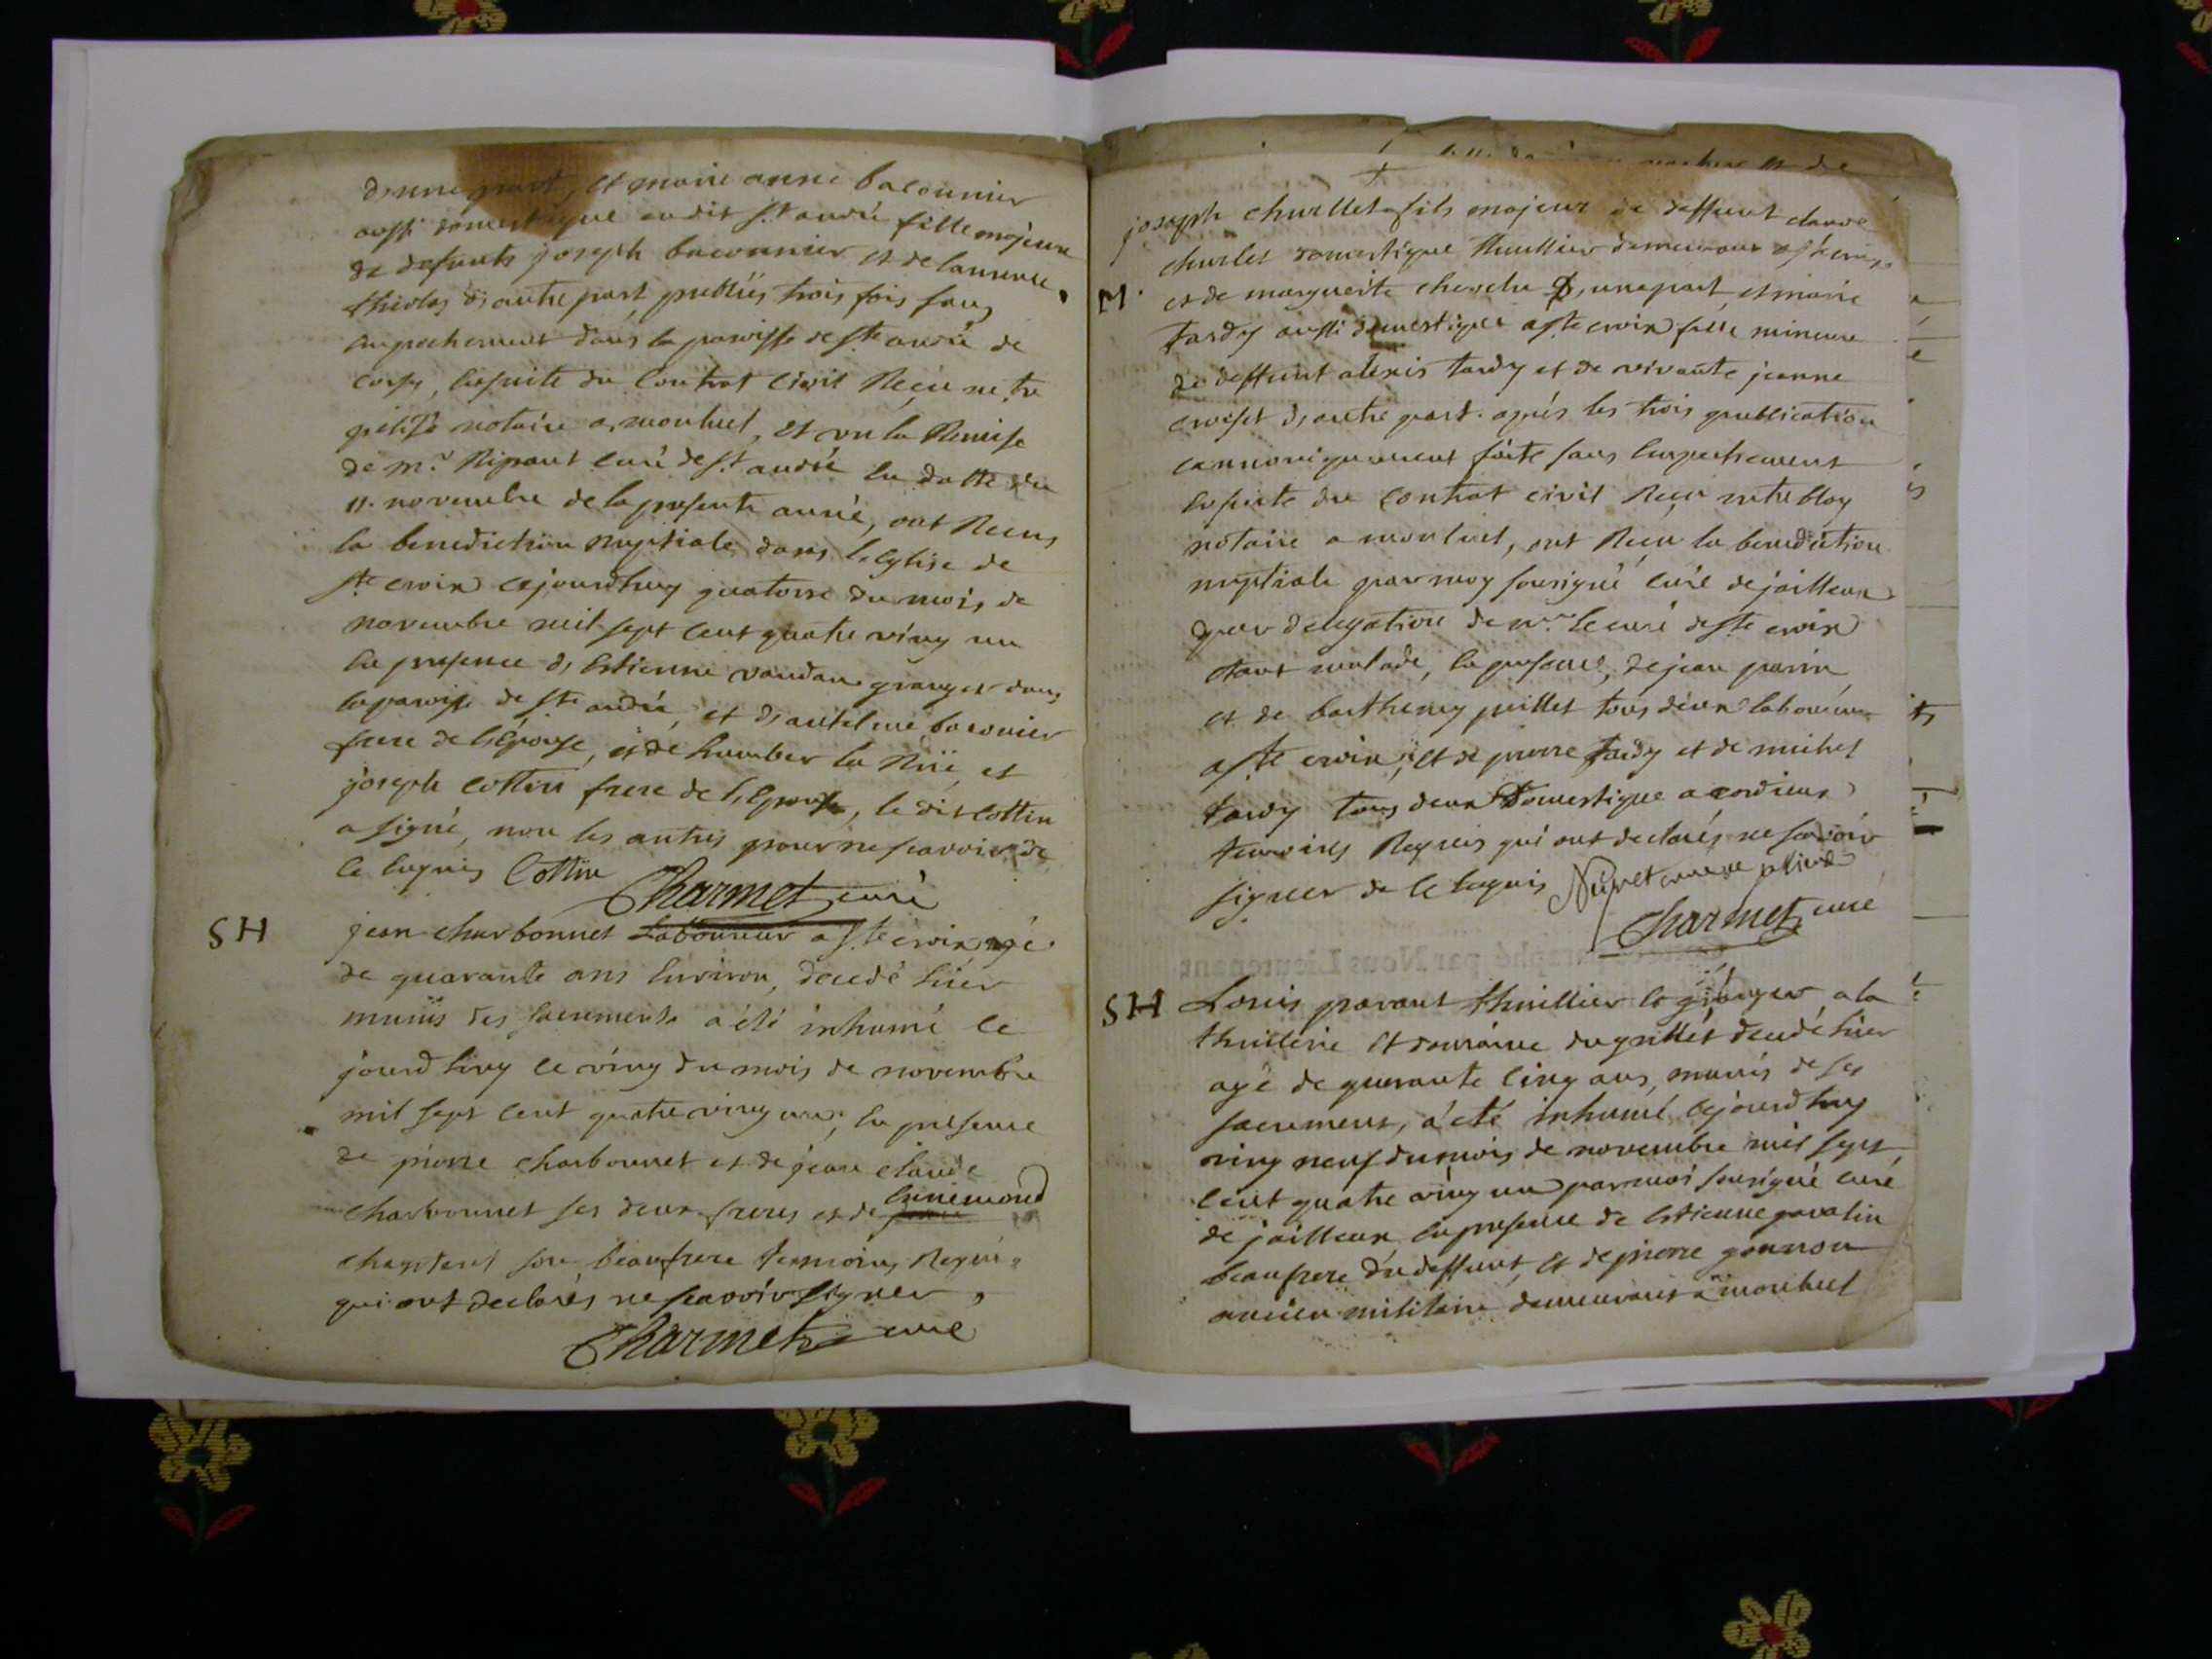 d'une part, et marie anne baconnier
aussi domestique audit st andré fille majeure
de defunts joseph baconnier et de laurence
thiolas d'autre part, publiés trois fois sans
empechement dans la paroisse de st andré de
corcy, ensuite du Contrat civil Reçu me tre
notaire a montluel, et vu la Remise
de mr. Ripaut curé de st andré en datte du
11. novembre de la presente année, ont Recus
la benediction nuptiale dans l'eglise de
ste croix cejourdhuy quatorse du mois de
novembre mil sept cent quatre ving un
en presence d'estienne vaudan granger dans
la paroisse de st andré, et d'antelme baconier
frere de l'epouse, et de humber la Rüe, et
joseph cottin frere de l'epoux, le dit cottin
a signé, non les autres pour ne scavoir de
ce enquis Cottin
Charmet curé
SH
jean charbonnet Laboureur a ste croix agé
de quarante ans environ, decedé hier
muniis des sacrements a été inhumé ce
jourdhuy le ving du mois de novembre
mil sept cent quatre ving un, en presence
de pierre charbonnet et de jean claude
charbonnet ses deux freres et de
son beaufrere temoins Requis
qui ont declarés ne scavoir signer,
Charmet curé
joseph churllet fils majeur de deffunt claude
churlet domestique thuillier demeurant a ste croix
M.
et de marguerite d'une part et marie
tardy aussi domestique a ste croix fille mineure
de deffunt alexis tardy et de vivante jeanne
croset d'autre part. aprés les trois publication
cannoniquement faite sans empechement
ensuite du contrat civil Reçu mtre bloy
notaire a montluel, ont Recu la benediction
nuptiale par moy sousigné curé de jailleux
par delegation de mr. le curé de ste croix
etant malade, en presence, de jean parin
et de barthemy juillet tous deux laboureur
a ste croix, et de pierre tardy et de michel
tardy tous deux Domestique a cordieux
temoins Requis qui ont declarés ne scavoir
signer de ce enquis
Charmet curé
SH
Louis pavant thuillier et granger a la
thuilerie et domaine du grillet decedé hier
agé de quarante cinq ans, muniis de ses
sacremens, a été inhumé cejourdhuy
ving neuf du mois de novembre mil sept
cent quatre ving un par moi sousigné curé
de jailleux en presence de Estienne gavalin
beaufrere du deffunt, et de pierre gonnon
ancien militaire demeurant a montluel